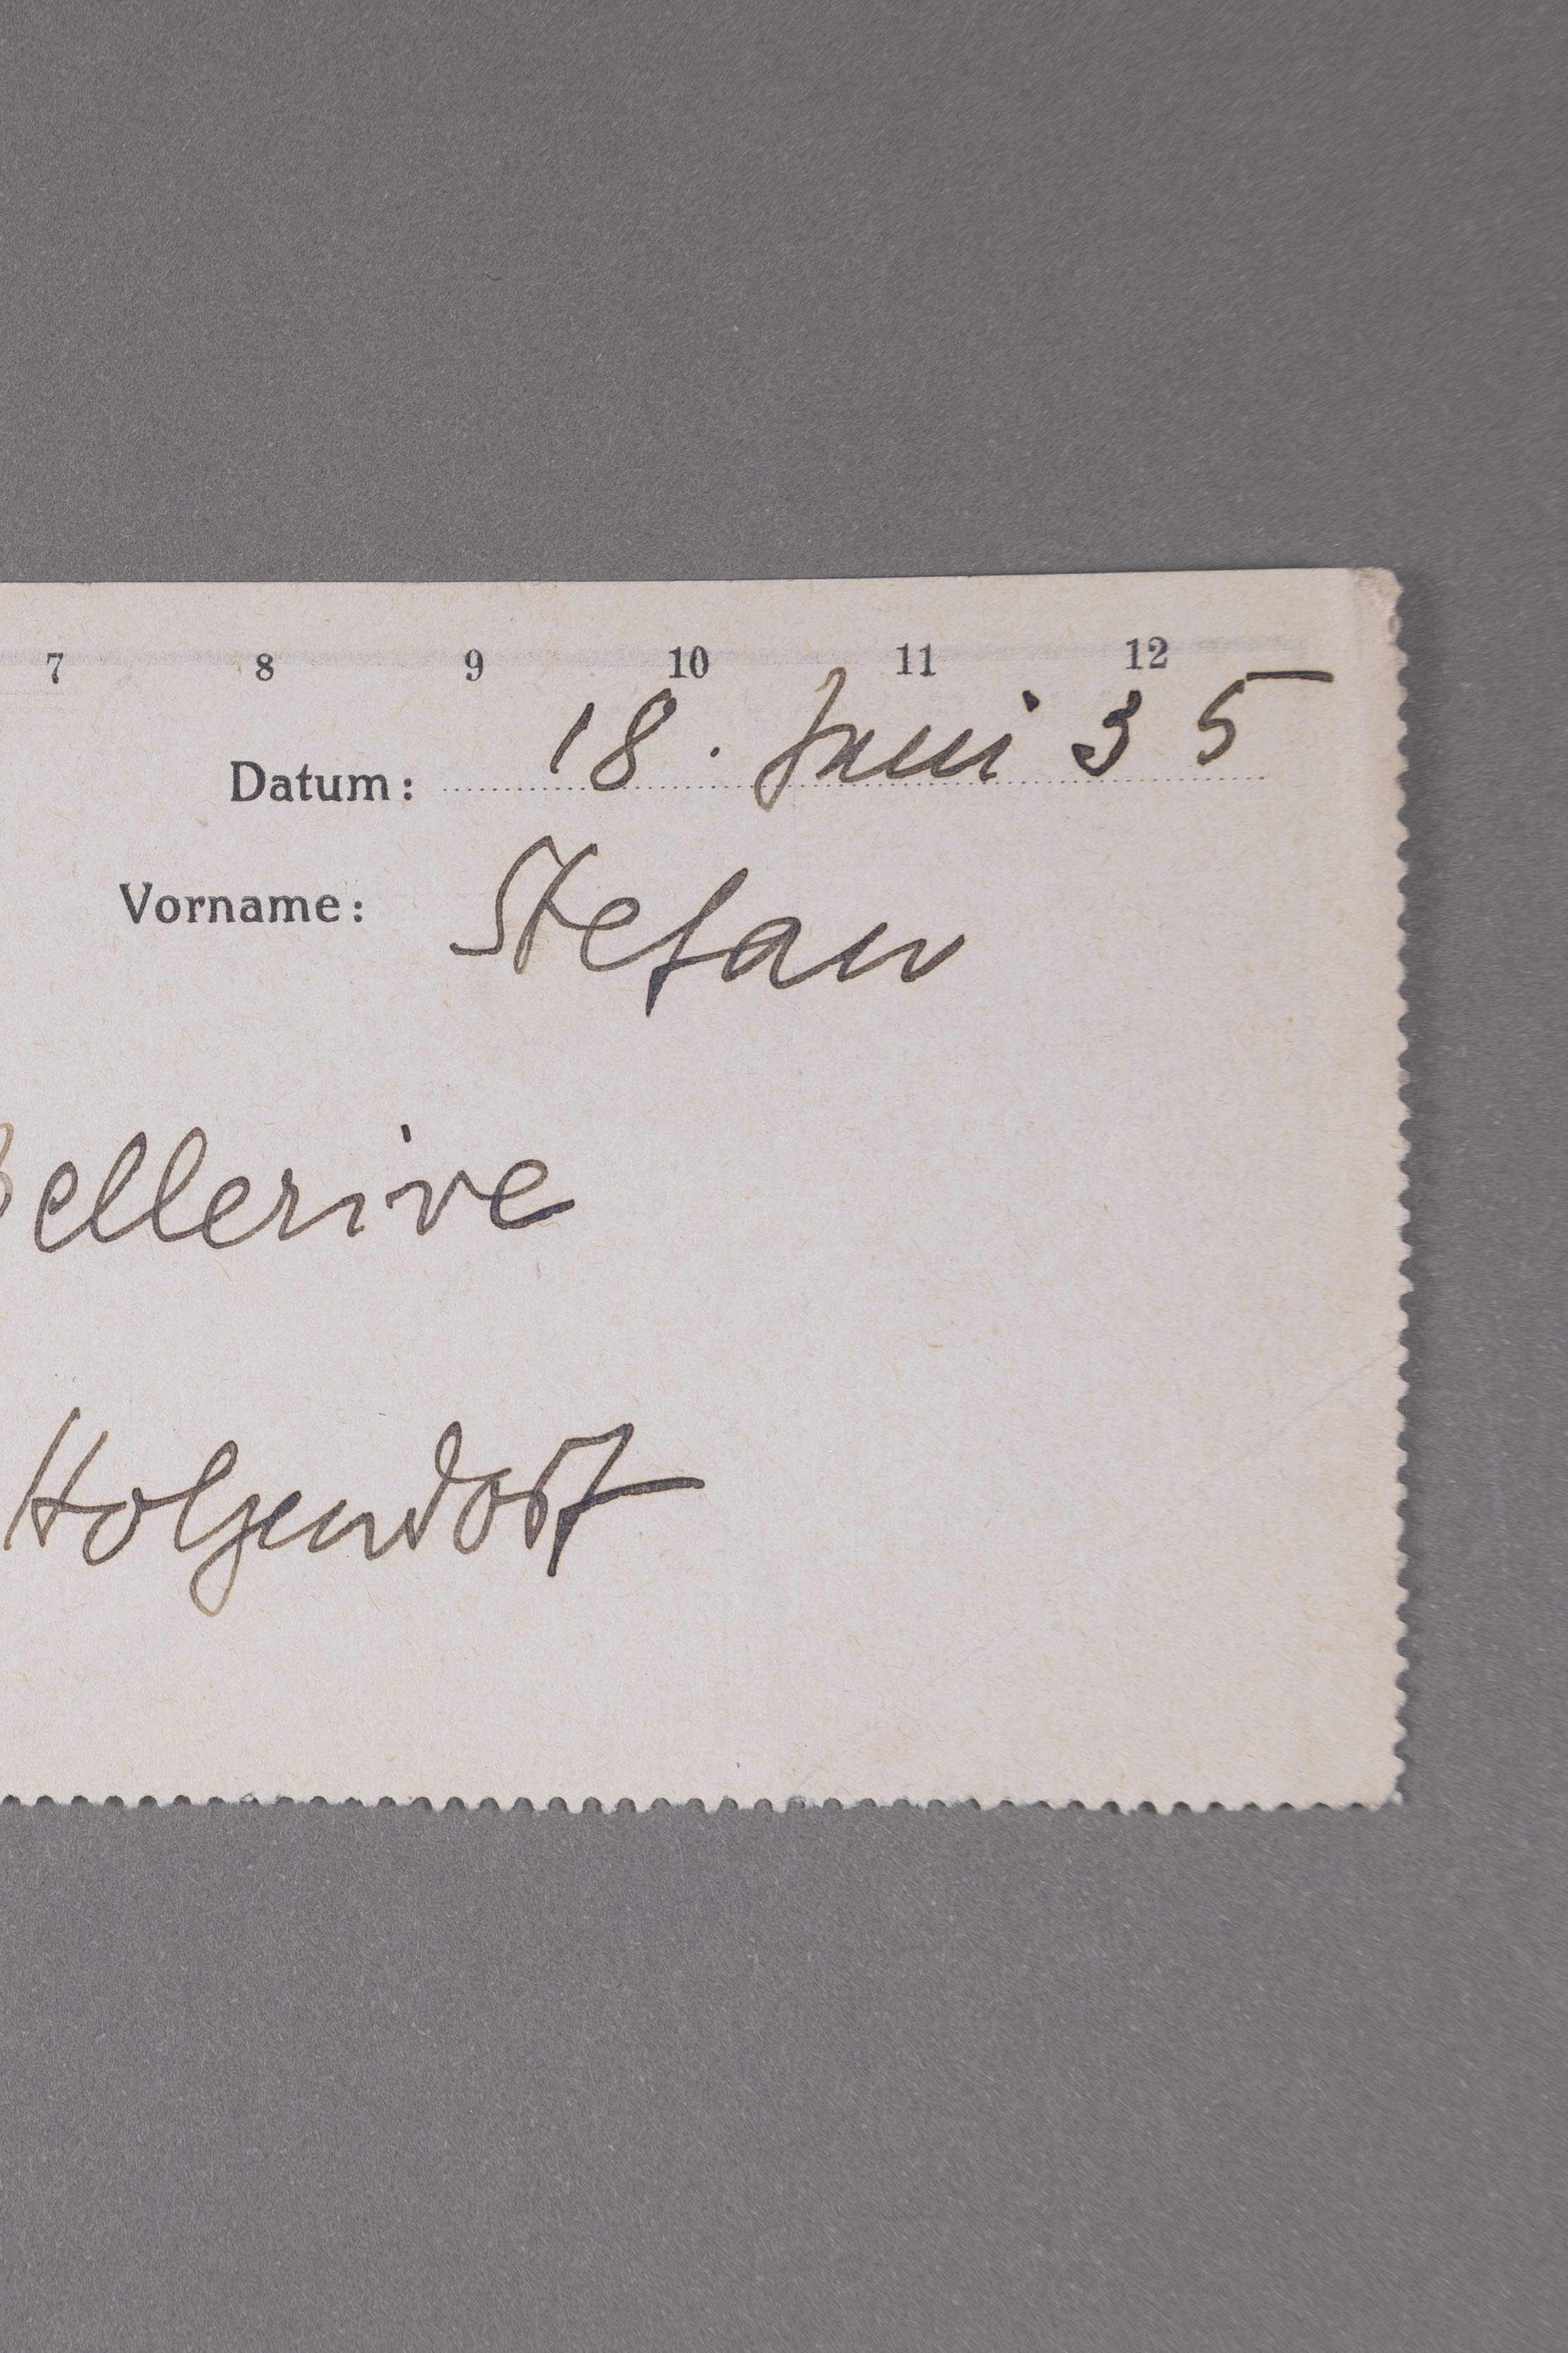 7 8 9 10 11 12
Datum: 18. Juni 35
Vorname: Stefan
Bellerive
Holzendorf